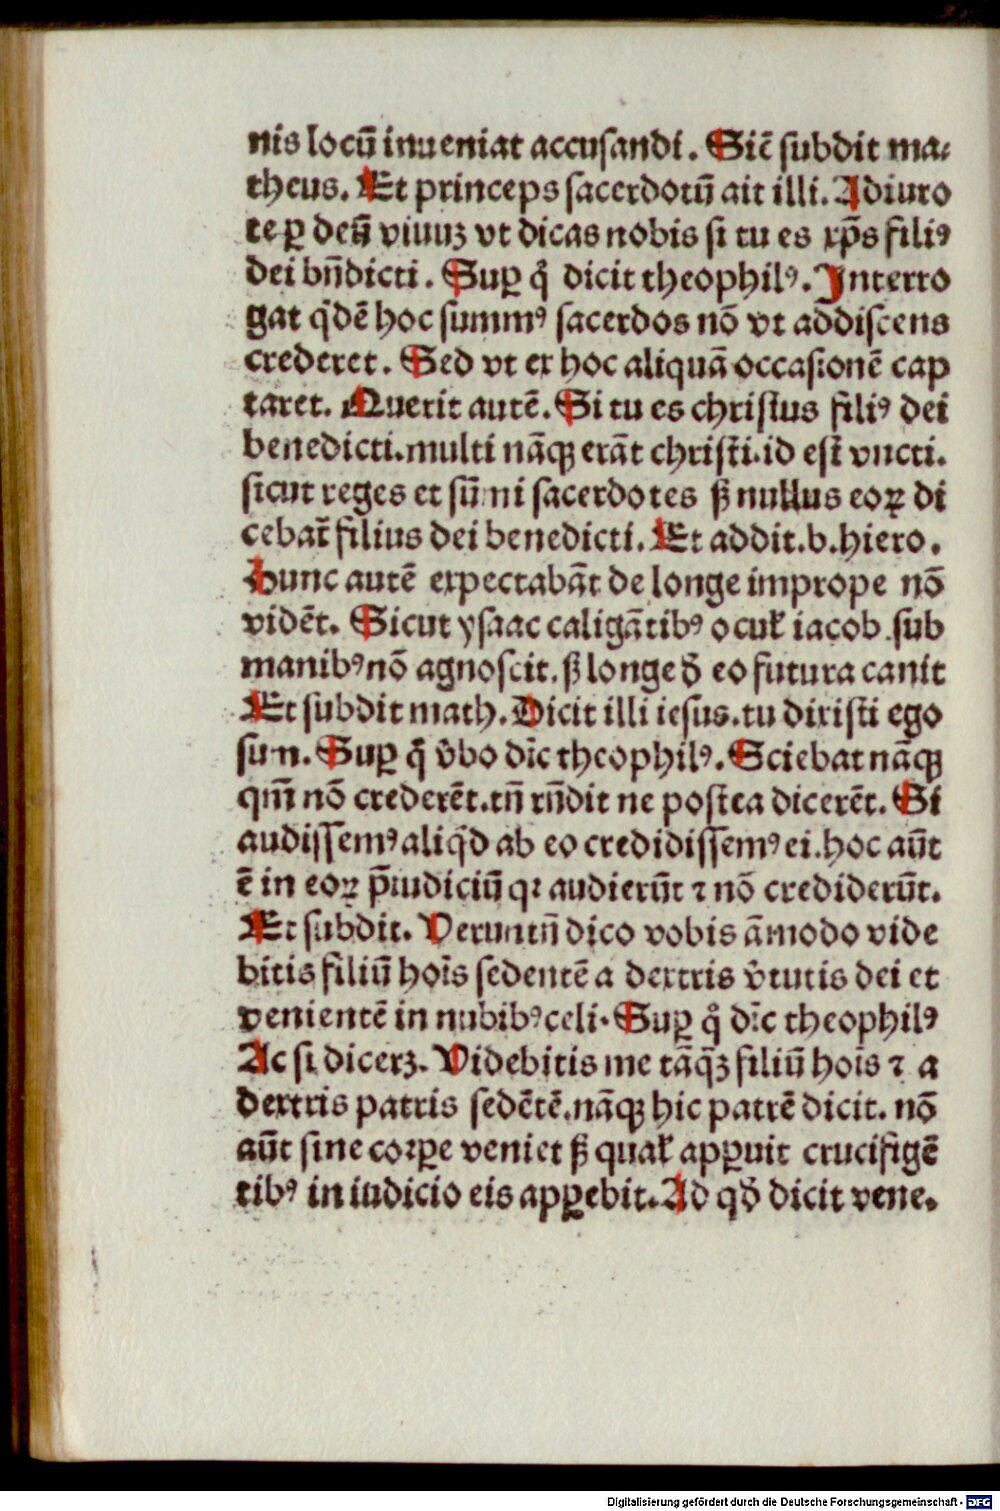 nis locū inueniat accusandi. Sicē subdit ma⸗
theus. Et princeps sacerdotū ait illi. Adiuro
te ꝑ deū viuuꝫ vt dicas nobis si tu es xp̄s filiꝰ
dei bn̄dicti. Suꝑ qͦ dicit theophilꝰ. Interro
gat qͥdē hoc summꝰ sacerdos nō vt addiscens
crederet. Sed vt ex hoc aliquā occasionē cap
taret. Querit autē. Si tu es christus filiꝰ dei
benedicti. multi nāqꝫ erāt christi. id est vncti.
sicut reges et sūmi sacerdotes sꝫ nullus eoꝝ di
cebat̄ filius dei benedicti. Et addit. b. hiero.
Hunc autē expectabāt de longe imprope nō
vidēt. Sicut ysaac caligātibꝰ ocul̄ iacob sub
manibꝰ nō agnoscit. sꝫ longe d̄ eo futura canit
Et subdit math. Dicit illi iesus. tu dixisti ego
sum. Suꝑ q̄ v̄bo dic̄ theophilꝰ. Sciebat nāqꝫ
qm̄ nō crederēt. tn̄ rn̄dit ne postea dicerēt. Si
audissemꝰ aliqͥd ab eo credidissemꝰ ei. hoc aūt
ē in eoꝝ p̄iudiciū qꝛ audierūt ⁊ nō crediderūt.
Et subdit. Veruntn̄ dico vobis āmodo vide
bitis filiū hoīs sedentē a dextris v̄tutis dei et
venientē in nubibꝰ celi. Suꝑ qͦ dic̄ theophilꝰ
Ac si dicerꝫ. Videbitis me tāqꝫ filiū hoīs ⁊ a
dextris patris sedētē. nāqꝫ hic patrē dicit. nō
aūt sine corꝑe veniet sꝫ qual̄ apꝑuit crucifigē
tibꝰ in iudicio eis apꝑebit. Ad qd̄ dicit vene.
Digitalisierung gefördert durch die Deutsche Forschungsgemeinschaft - DFG